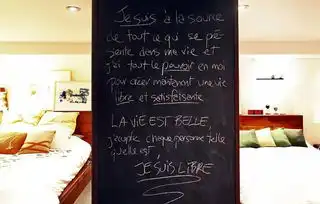 Je suis à la source
de tout ce qui se pré
sente dans ma vie et
j'ai tout le pouvoir en moi
pour créer maintenant une vie
libre et satisfaisante
LA VIE EST BELLE,
j'accepte chaque personne telle
qu'elle est
JE SUIS LIBRE